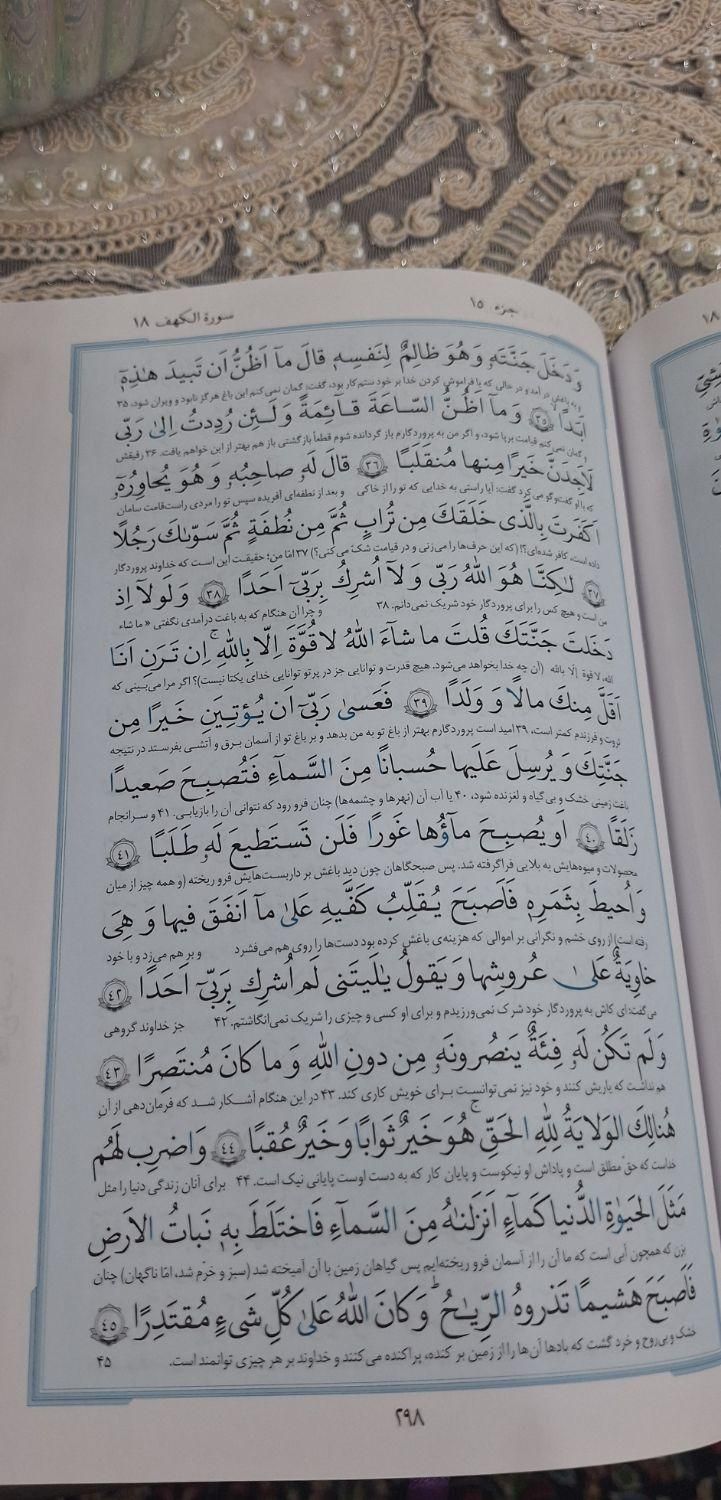 جزء ۱۵
سورة الكهف ۱۸
وَدَخَلَ جَنَّتَهٗ وَ هُوَ ظالِمٌ لِنَفسِهٖ قالَ ماۤ اَظُنُّ اَن تَبيدَ هٰذِهٖۤ
و به باغش در آمد و در حالی که با فراموش کردن خدا بر خود ستم کار بود، گفت: گمان نمی کنم این باغ هرگز نابود و ویران شود، ۳۵
اَبَدًا ﴿٣٥﴾ وَ ماۤ اَظُنُّ السّاعَةَ قاۤئِمَةً وَ لَئِن رُدِدتُ اِلىٰ رَبّى
و گمان نمی کنم قیامت برپا شود، و اگر من به پروردگارم باز گردانده شوم قطعاً بازگشتی باز هم بهتر از این خواهم یافت. ۳۶ رفیقش
لَاَجِدَنَّ خَيرًا مِنها مُنقَلَبًا ﴿٣٦﴾ قالَ لَهٗ صاحِبُهٗ وَ هُوَ يُحاوِرُهٗۤ
که با او گفت‌وگو می کرد گفت: آیا راستی به خدایی که تو را از خاکی و بعد از نطفه‌ای آفریده سپس تو را مردی راست‌قامت سامان
اَكَفَرتَ بِالَّذى خَلَقَكَ مِن تُرابٍ ثُمَّ مِن نُطفَةٍ ثُمَّ سَوّىٰكَ رَجُلًا
داده است، کافر شده‌ای؟! (که این حرف‌ها را می‌زنی و در قیامت شک می کنی؟) ۳۷ امّا من؛ حقیقت این است که خداوند پروردگار
﴿٣٧﴾ لٰكِنَّا۠ هُوَ اللّٰهُ رَبّى وَ لاۤ اُشرِكُ بِرَبّىۤ اَحَدًا ﴿٣٨﴾ وَ لَولاۤ اِذ
من است و هیچ کس را برای پروردگار خود شریک نمی‌دانم. ۳۸ و چرا آن هنگام که به باغت درآمدی نگفتی «ما شاء
دَخَلتَ جَنَّتَكَ قُلتَ ما شاۤءَ اللّٰهُ لا قُوَّةَ اِلّا بِاللّٰهِ ۚ اِن تَرَنِ اَنَا
الله، لا قوة إلّا بالله (آن چه خدا بخواهد می‌شود. هیچ قدرت و توانایی جز در پرتو توانایی خدای یکتا نیست)؟ اگر مرا می‌بینی که
اَقَلَّ مِنكَ مالًا وَ وَلَدًا ﴿٣٩﴾ فَعَسىٰ رَبّىۤ اَن يُؤتِيَنِ خَيرًا مِن
ثروت و فرزندم کمتر است، ۳۹ امید است پروردگارم بهتر از باغ تو به من بدهد و بر باغ تو از آسمان برق و آتشی بفرستد در نتیجه
جَنَّتِكَ وَ يُرسِلَ عَلَيها حُسبانًا مِنَ السَّماۤءِ فَتُصبِحَ صَعيدًا
باغت زمینی خشک و بی‌گیاه و لغزنده شود، ۴۰ یا آب آن (نهرها و چشمه‌ها) چنان فرو رود که نتوانی آن را بازیابی. ۴۱ و سرانجام
زَلَقًا ﴿٤٠﴾ اَو يُصبِحَ ماۤؤُها غَورًا فَلَن تَستَطيعَ لَهٗ طَلَبًا ﴿٤١﴾
محصولات و میوه‌هایش به بلایی فراگرفته شد. پس صبحگاهان چون دید باغش بر داربست‌هایش فرو ریخته (و همه چیز از میان
وَ اُحيطَ بِثَمَرِهٖ فَاَصبَحَ يُقَلِّبُ كَفَّيهِ عَلىٰ ماۤ اَنفَقَ فيها وَ هِىَ
رفته است) از روی خشم و نگرانی بر اموالی که هزینه‌ی باغش کرده بود دست‌ها را روی هم می‌فشرد و بر هم می‌زد و با خود
خاوِيَةٌ عَلىٰ عُروشِها وَ يَقولُ يٰلَيتَنى لَم اُشرِك بِرَبّىۤ اَحَدًا ﴿٤٢﴾
می‌گفت: ای کاش به پروردگار خود شرک نمی‌ورزیدم و برای او کسی و چیزی را شریک نمی‌انگاشتم. ۴۲ جز خداوند گروهی
وَ لَم تَكُن لَهٗ فِئَةٌ يَنصُرونَهٗ مِن دونِ اللّٰهِ وَ ما كانَ مُنتَصِرًا ﴿٤٣﴾
هم نداشت که یاریش کنند و خود نیز نمی‌توانست برای خویش کاری کند. ۴۳ در این هنگام آشکار شد که فرمان‌دهی از آنِ
هُنالِكَ الوَلايَةُ لِلّٰهِ الحَقِّ ۚ هُوَ خَيرٌ ثَوابًا وَ خَيرٌ عُقبًا ﴿٤٤﴾ وَ اضرِب لَهُم
خداست که حق مطلق است و پاداش او نیکوست و پایان کار که به دست اوست پایانی نیک است. ۴۴ برای آنان زندگی دنیا را مثل
مَثَلَ الحَيٰوةِ الدُّنيا كَماۤءٍ اَنزَلنٰهُ مِنَ السَّماۤءِ فَاختَلَطَ بِهٖ نَباتُ الاَرضِ
بزن که همچون آبی است که ما آن را از آسمان فرو ریخته‌ایم پس گیاهان زمین با آن آمیخته شد (سبز و خرّم شد، امّا ناگهان) چنان
فَاَصبَحَ هَشيمًا تَذروهُ الرِّيٰحُ ۗ وَ كانَ اللّٰهُ عَلىٰ كُلِّ شَىءٍ مُقتَدِرًا ﴿٤٥﴾
خشک و بی‌روح و خرد گشت که بادها آن‌ها را از زمین بر کنده، پراکنده می کنند و خداوند بر هر چیزی توانمند است. ۴۵
۲۹۸